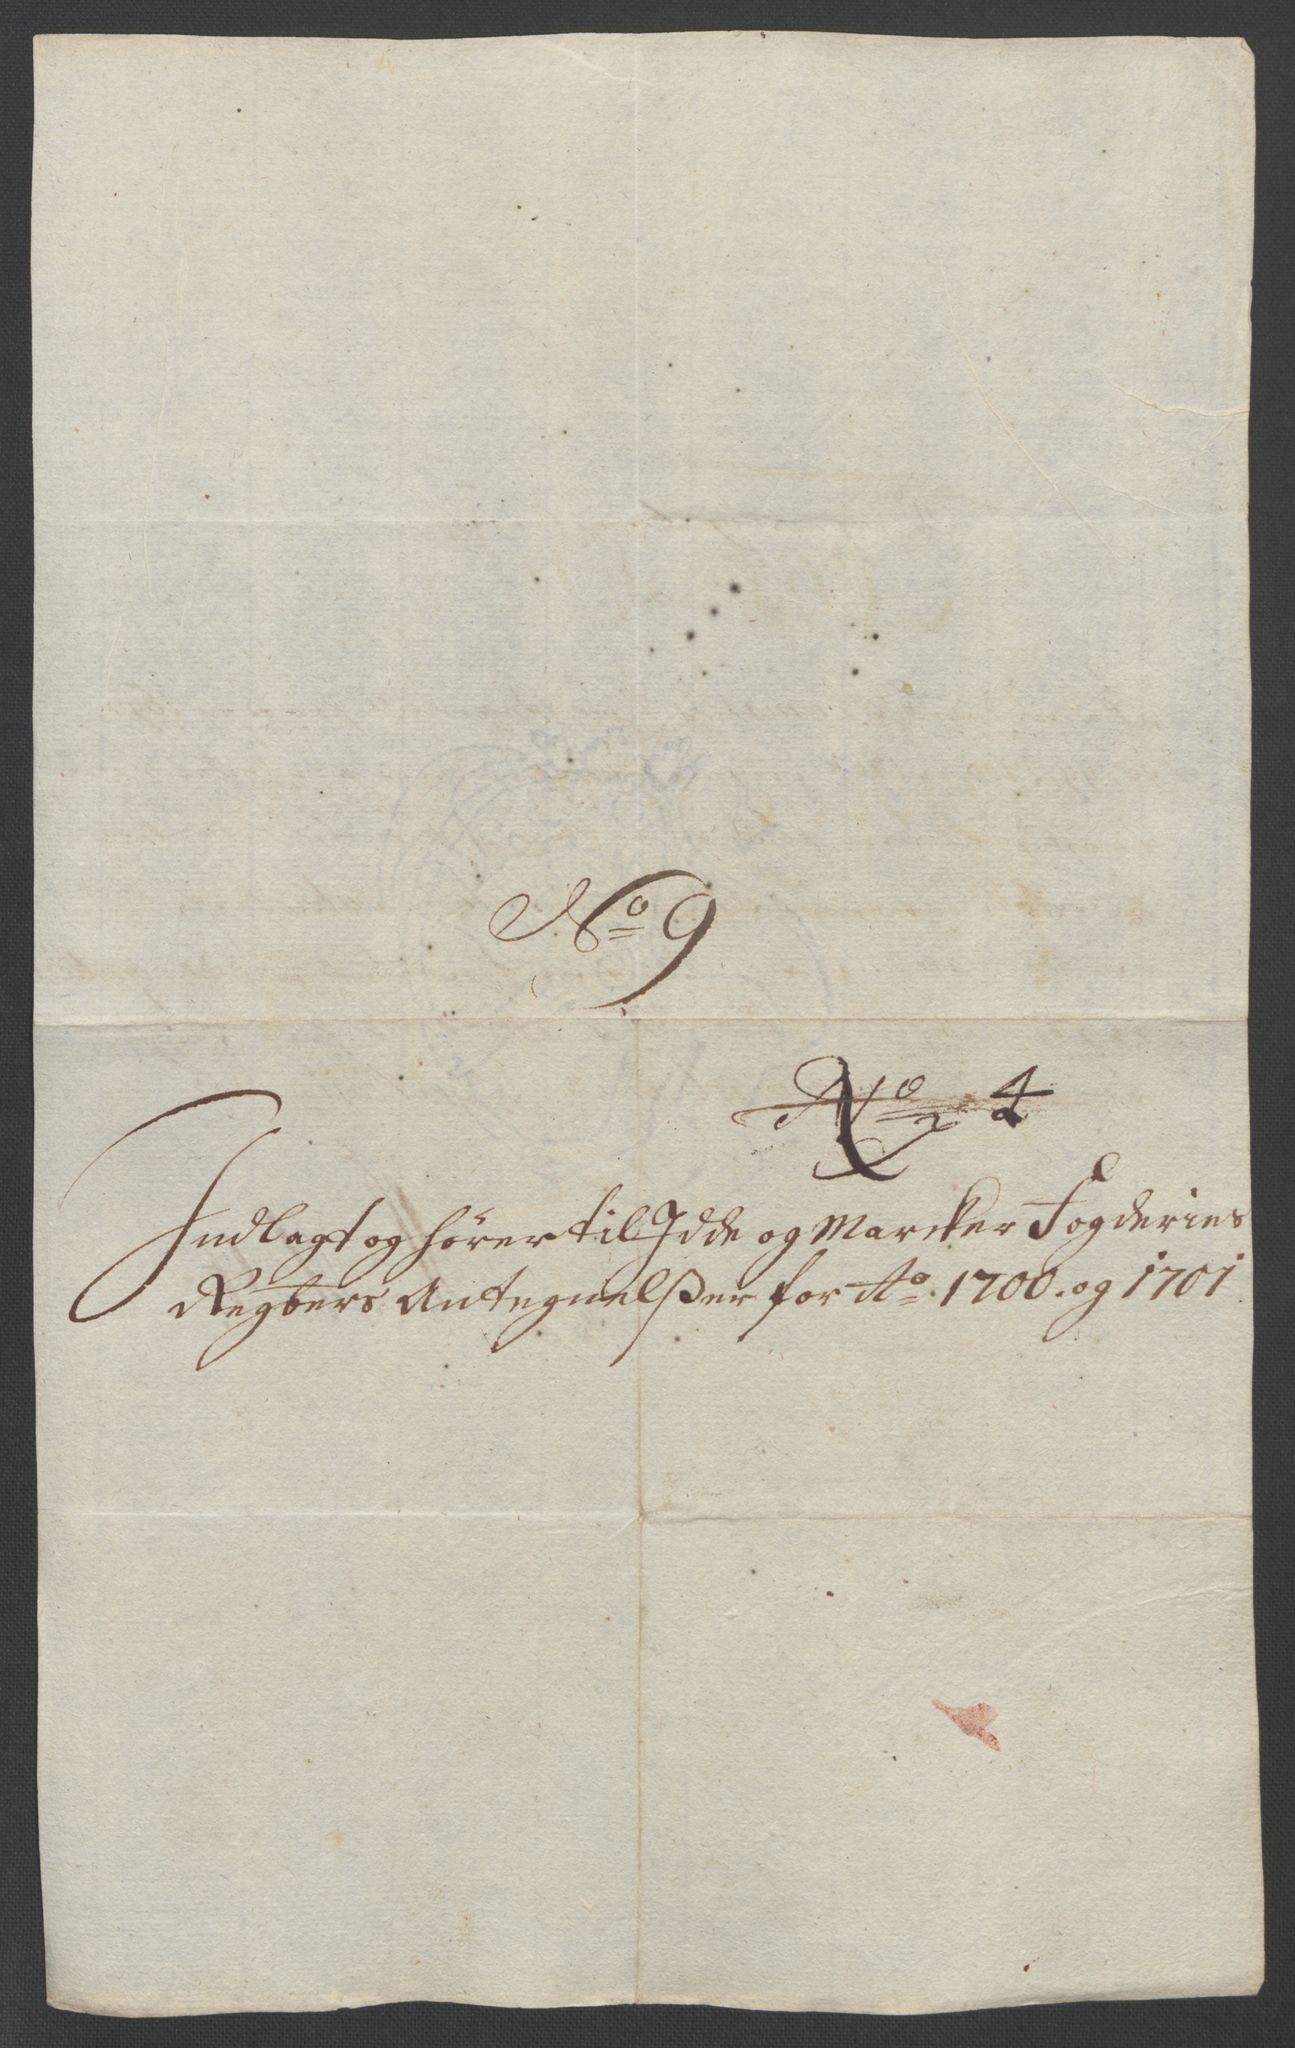 No 9
No 4
Indlagt og hörer til Idde og Marcker Fogderies
Regbers Antegnelsßer for Ao. 1700. og 1701